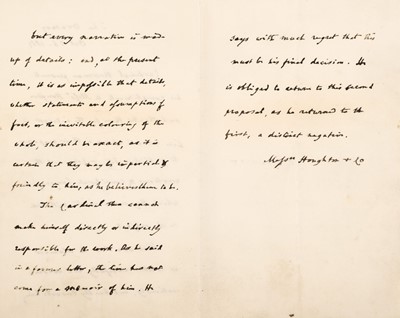 but every narrative is made
up of details: and, at the present
time, it is as impossible that details,
whether statements and assumptions of
fact, or the inevitable colouring of the
whole, should be exact, as it is
certain that they may be impartial &
friendly to him, as he believes them to be.
The Cardinal then cannot
make himself directly or indirectly
responsible for the work. As he said
in a former letter, the time has not
come for a memoir of him. He
says with much regret that this
must be his final decision. He
is obliged to return to this second
proposal, as he returned to the
first, a distinct negative.
Messrs Houghton & Co